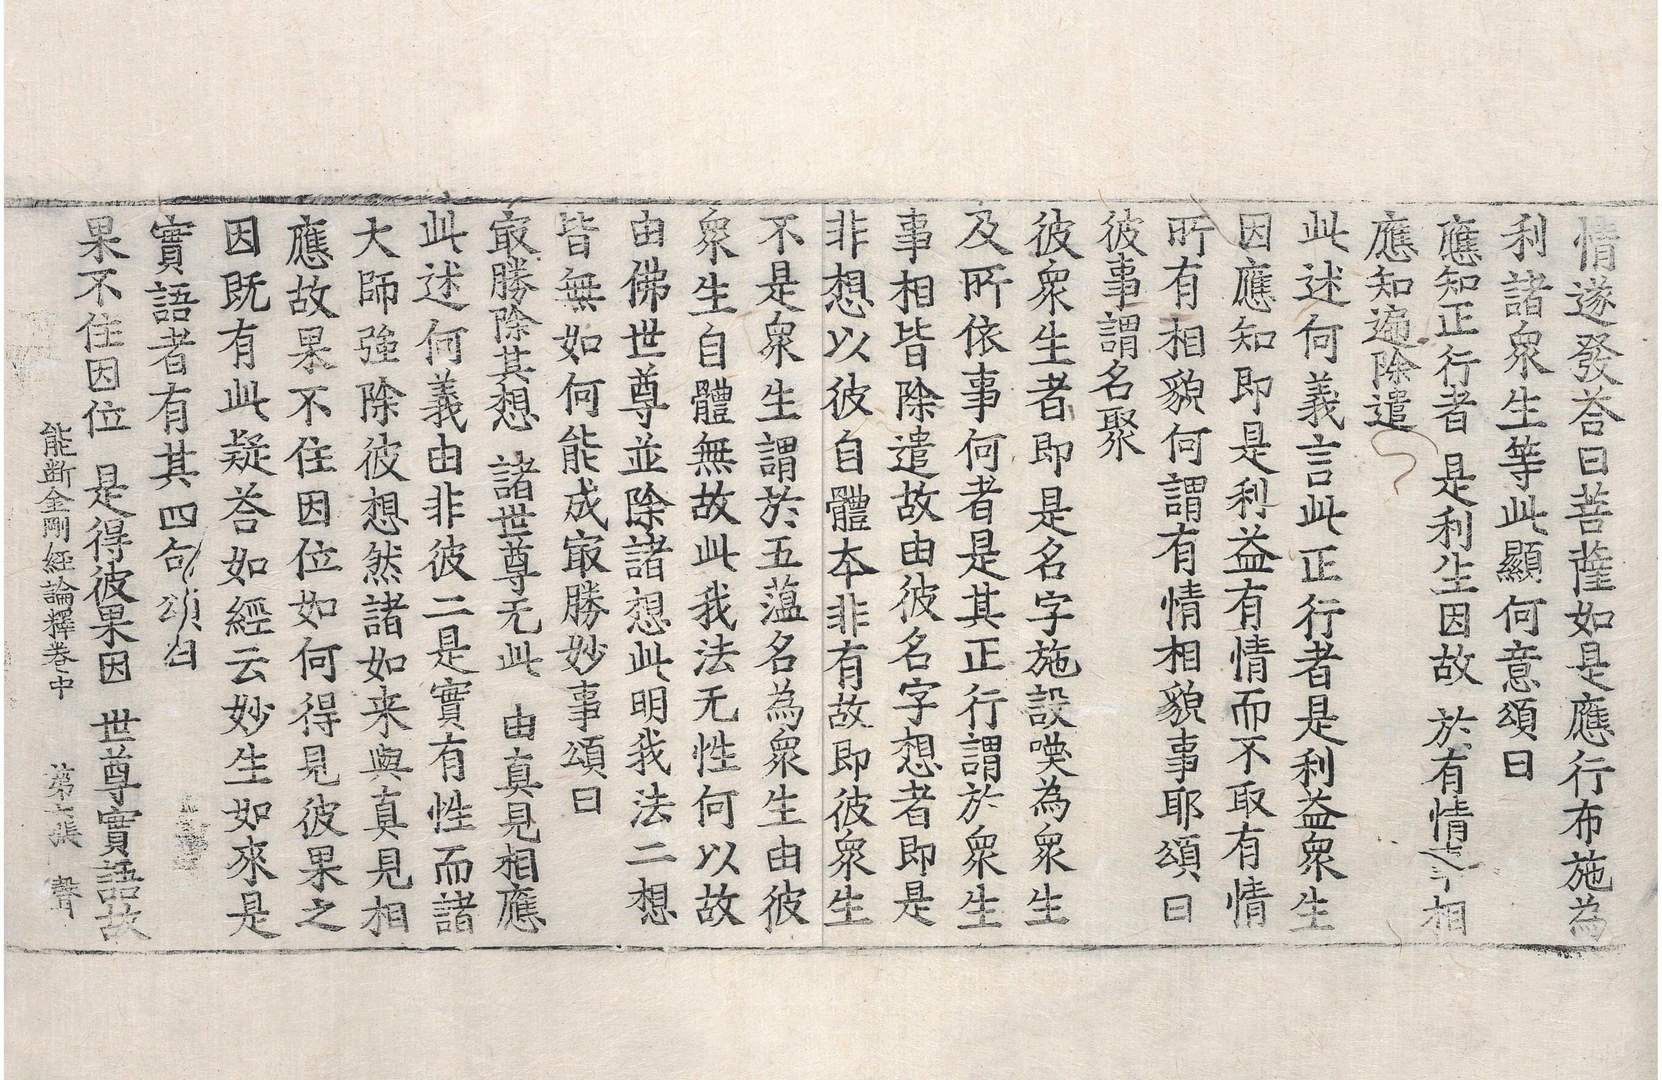 情遂發荅曰菩薩如是應行布施為
利諸衆生等此顯何意頌曰
應知正行者　是利生因故　於有情事相
應知遍除遣
此述何義言此正行者是利益衆生
因應知即是利益有情而不取有情
所有相貌何謂有情相貌事耶頌曰
彼事謂名聚
彼衆生者即是名字施設喚為衆生
及所依事何者是其正行謂於衆生
事相皆除遣故由彼名字想者即是
非想以彼自體本非有故即彼衆生
不是衆生謂於五蕰名為衆生由彼
衆生自體無故此我法无性何以故
由佛世尊並除諸想此明我法二想
皆無如何能成㝡勝妙事頌曰
㝡勝除其想　諸世尊无此　由真見相應
此述何義由非彼二是實有性而諸
大師強除彼想然諸如来與真見相
應故果不住因位如何得見彼果之
因既有此疑荅如經云妙生如來是
實語者有其四句頌曰
果不住因位　是得彼果因　世尊實語故
能斷金剛經論釋卷中　第六張　聲